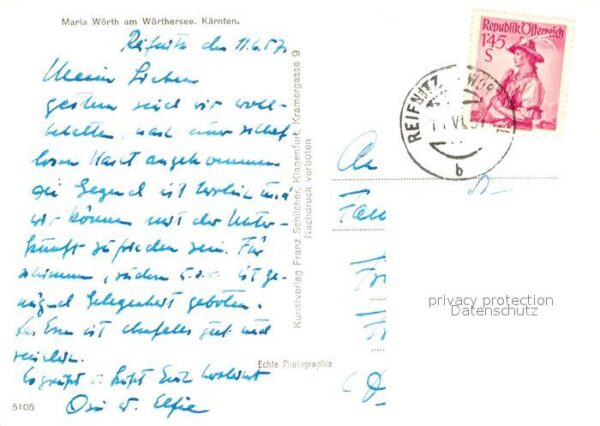 Maria Wörth am Wörthersee. Kärnten.
Reifnitz den 11.6.57.
Meine Lieben
gestern sind wir wohl-
behalten, nach einer schlaf
losen Nacht angekommen
die Gegend ist herrlich und
wir können mit der Unter-
kunft zufrieden sein. Für
schwimmen, rudern u.s.w. ist ge-
nügend Gelegenheit geboten.
Das Essen ist ebenfalls gut und
reichlich.
Es grüßt u. küßt Euch
Ossi u. Elfie
5105
Kunstverlag Franz Schilcher, Klagenfurt, Kramergasse 9
Nachdruck verboten
Echte Photographie
Republik Österreich
1'45
S
REIFNITZ
VI.57
b
An
Fam
privacy protection
Datenschutz